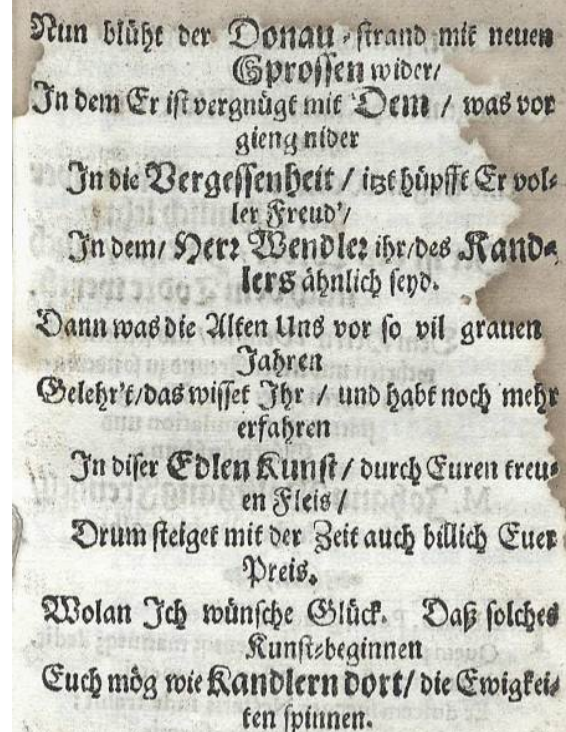 Nun blüht der Donau-strand mit neuen
Sprossen wider/
In dem Er ist vergnügt mit Dem / was vor
gieng nider
In die Vergessenheit / itzt hüpfft Er vol-
ler Freud'/
In dem/ Herr Wendler ihr/des Kand-
lers ähnlich seyd.
Dann was die Alten Uns vor so vil grauen
Jahren
Gelehr't/das wisset Ihr / und habt noch mehr
erfahren
In diser Edlen Kunst / durch Euren treu-
en Fleis /
Drum steiget mit der Zeit auch billich Euer
Preis.
Wolan Ich wünsche Glück. Daß solches
Kunst-beginnen
Euch mög wie Kandlern dort/ die Ewigkei-
ten spinnen.